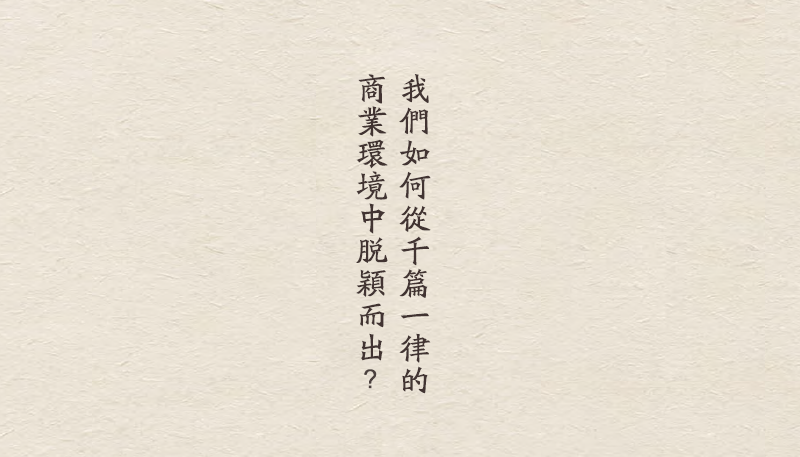 我們如何從千篇一律的
商業環境中脫穎而出？